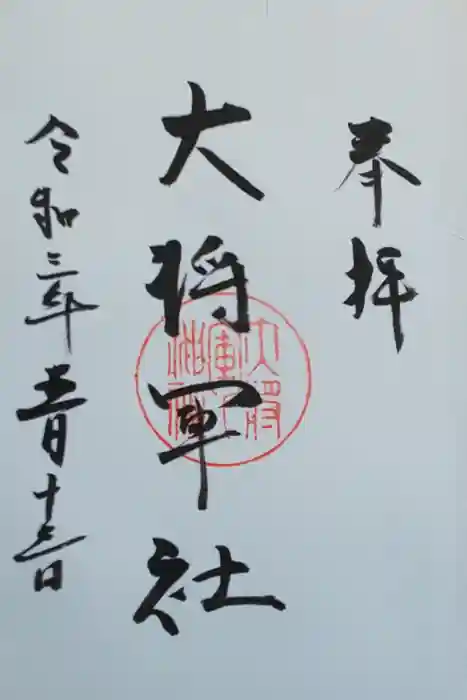 奉拝
大将軍社
令和三年十一月十三日